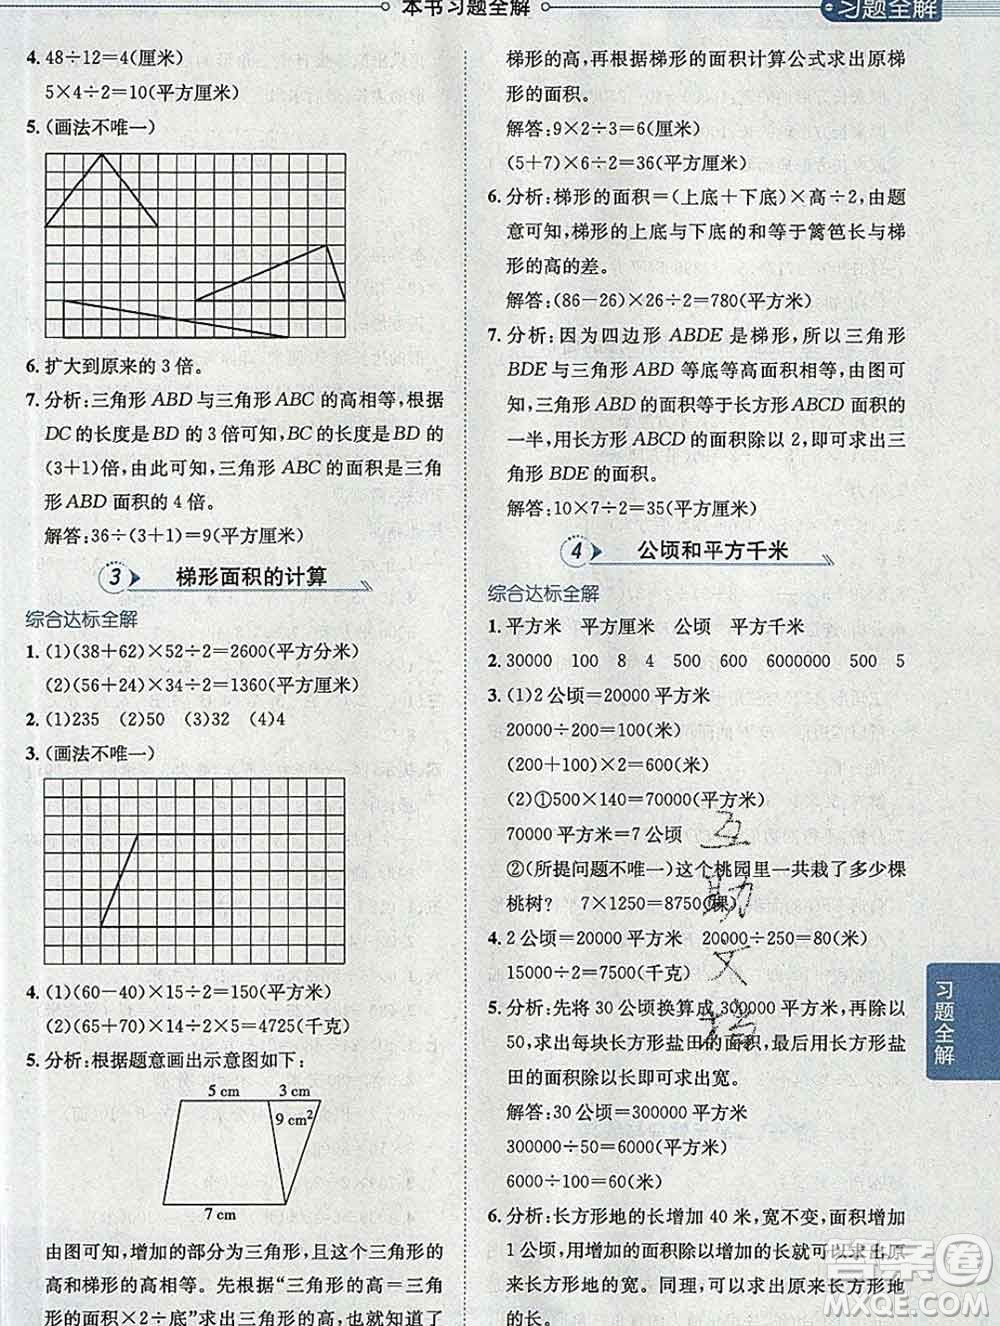 本书习题全解
习题全解
4. 48÷12=4(厘米)
5×4÷2=10(平方厘米)
5. (画法不唯一)
6. 扩大到原来的 3 倍。
7. 分析:三角形 ABD 与三角形 ABC 的高相等,根据
DC 的长度是 BD 的 3 倍可知,BC 的长度是 BD 的
(3+1)倍,由此可知,三角形 ABC 的面积是三角
形 ABD 面积的 4 倍。
解答:36÷(3+1)=9(平方厘米)
3 梯形面积的计算
综合达标全解
1. (1)(38+62)×52÷2=2600(平方分米)
(2)(56+24)×34÷2=1360(平方厘米)
2. (1)235 (2)50 (3)32 (4)4
3. (画法不唯一)
4. (1)(60-40)×15÷2=150(平方厘米)
(2)(65+70)×14÷2×5=4725(千克)
5. 分析:根据题意画出示意图如下:
5 cm 3 cm
9 cm²
7 cm
由图可知,增加的部分为三角形,且这个三角形的
高和梯形的高相等。先根据“三角形的高=三角
形的面积×2÷底”求出三角形的高,也就求出了
梯形的高,再根据梯形的面积计算公式求出原梯
形的面积。
解答:9×2÷3=6(厘米)
(5+7)×6÷2=36(平方厘米)
6. 分析:梯形的面积=(上底+下底)×高÷2,由题
意可知,梯形的上底与下底的和等于篱笆长与梯
形的高的差。
解答:(86-26)×26÷2=780(平方米)
7. 分析:因为四边形 ABDE 是梯形,所以三角形
BDE 与三角形 ABD 等底等高面积相等,由图可
知,三角形 ABD 的面积等于长方形 ABCD 面积的
一半,用长方形 ABCD 的面积除以 2,即可求出三
角形 BDE 的面积。
解答:10×7÷2=35(平方厘米)
4 公顷和平方千米
综合达标全解
1. 平方米 平方厘米 公顷 平方千米
2. 30000 100 8 4 500 600 6000000 500 5
3. (1)2 公顷=20000 平方米
20000÷200=100(米)
(200+100)×2=600(米)
(2)①500×140=70000(平方米)
70000 平方米=7 公顷
②(所提问题不唯一)这个桃园里一共栽了多少棵
桃树? 7×1250=8750(棵)
4. 2 公顷=20000 平方米 20000÷250=80(米)
15000÷2=7500(千克)
5. 分析:先将 30 公顷换算成 300000 平方米,再除以
50,求出每块长方形盐田的面积,最后用长方形盐
田的面积除以长即可求出宽。
解答:30 公顷=300000 平方米
300000÷50=6000(平方米)
6000÷100=60(米)
6. 分析:长方形地的长增加 40 米,宽不变,面积增加
1 公顷,用增加的面积除以增加的长就可以求出原
来长方形地的宽。同理,可以求出原来长方形地
的长。
习题全解
互
助
文
答案圈
MXQE.COM